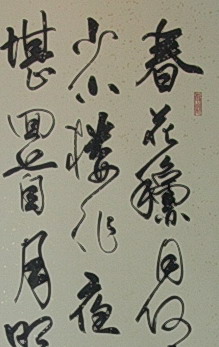 春花秋月何
少小樓昨夜
堪回首月明